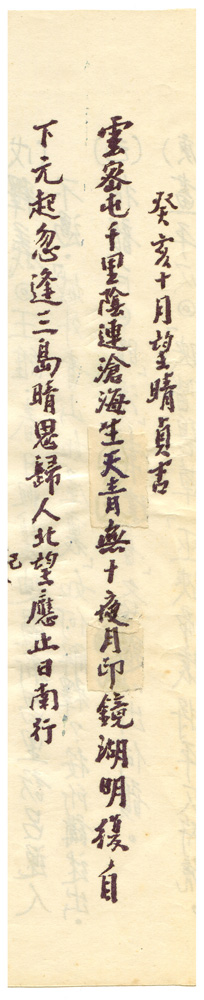 癸亥十月望晴貞書
雲密屯千里陰連滄海生天青無十夜月印鏡湖明復自
下元起忽逢三島晴思歸人北望應止日南行
已